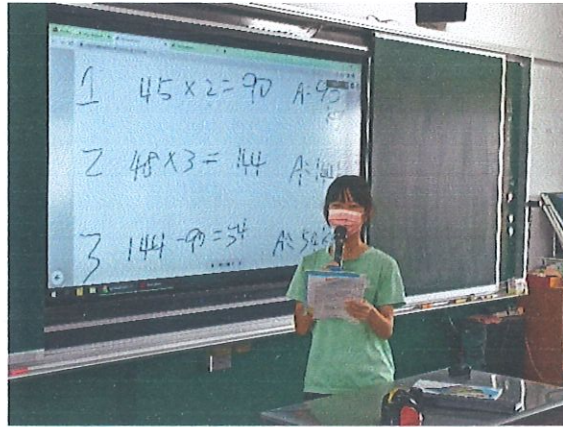 1 45×2=90 A:90
2 48×3=144 A:144
3 144-90=54 A:54